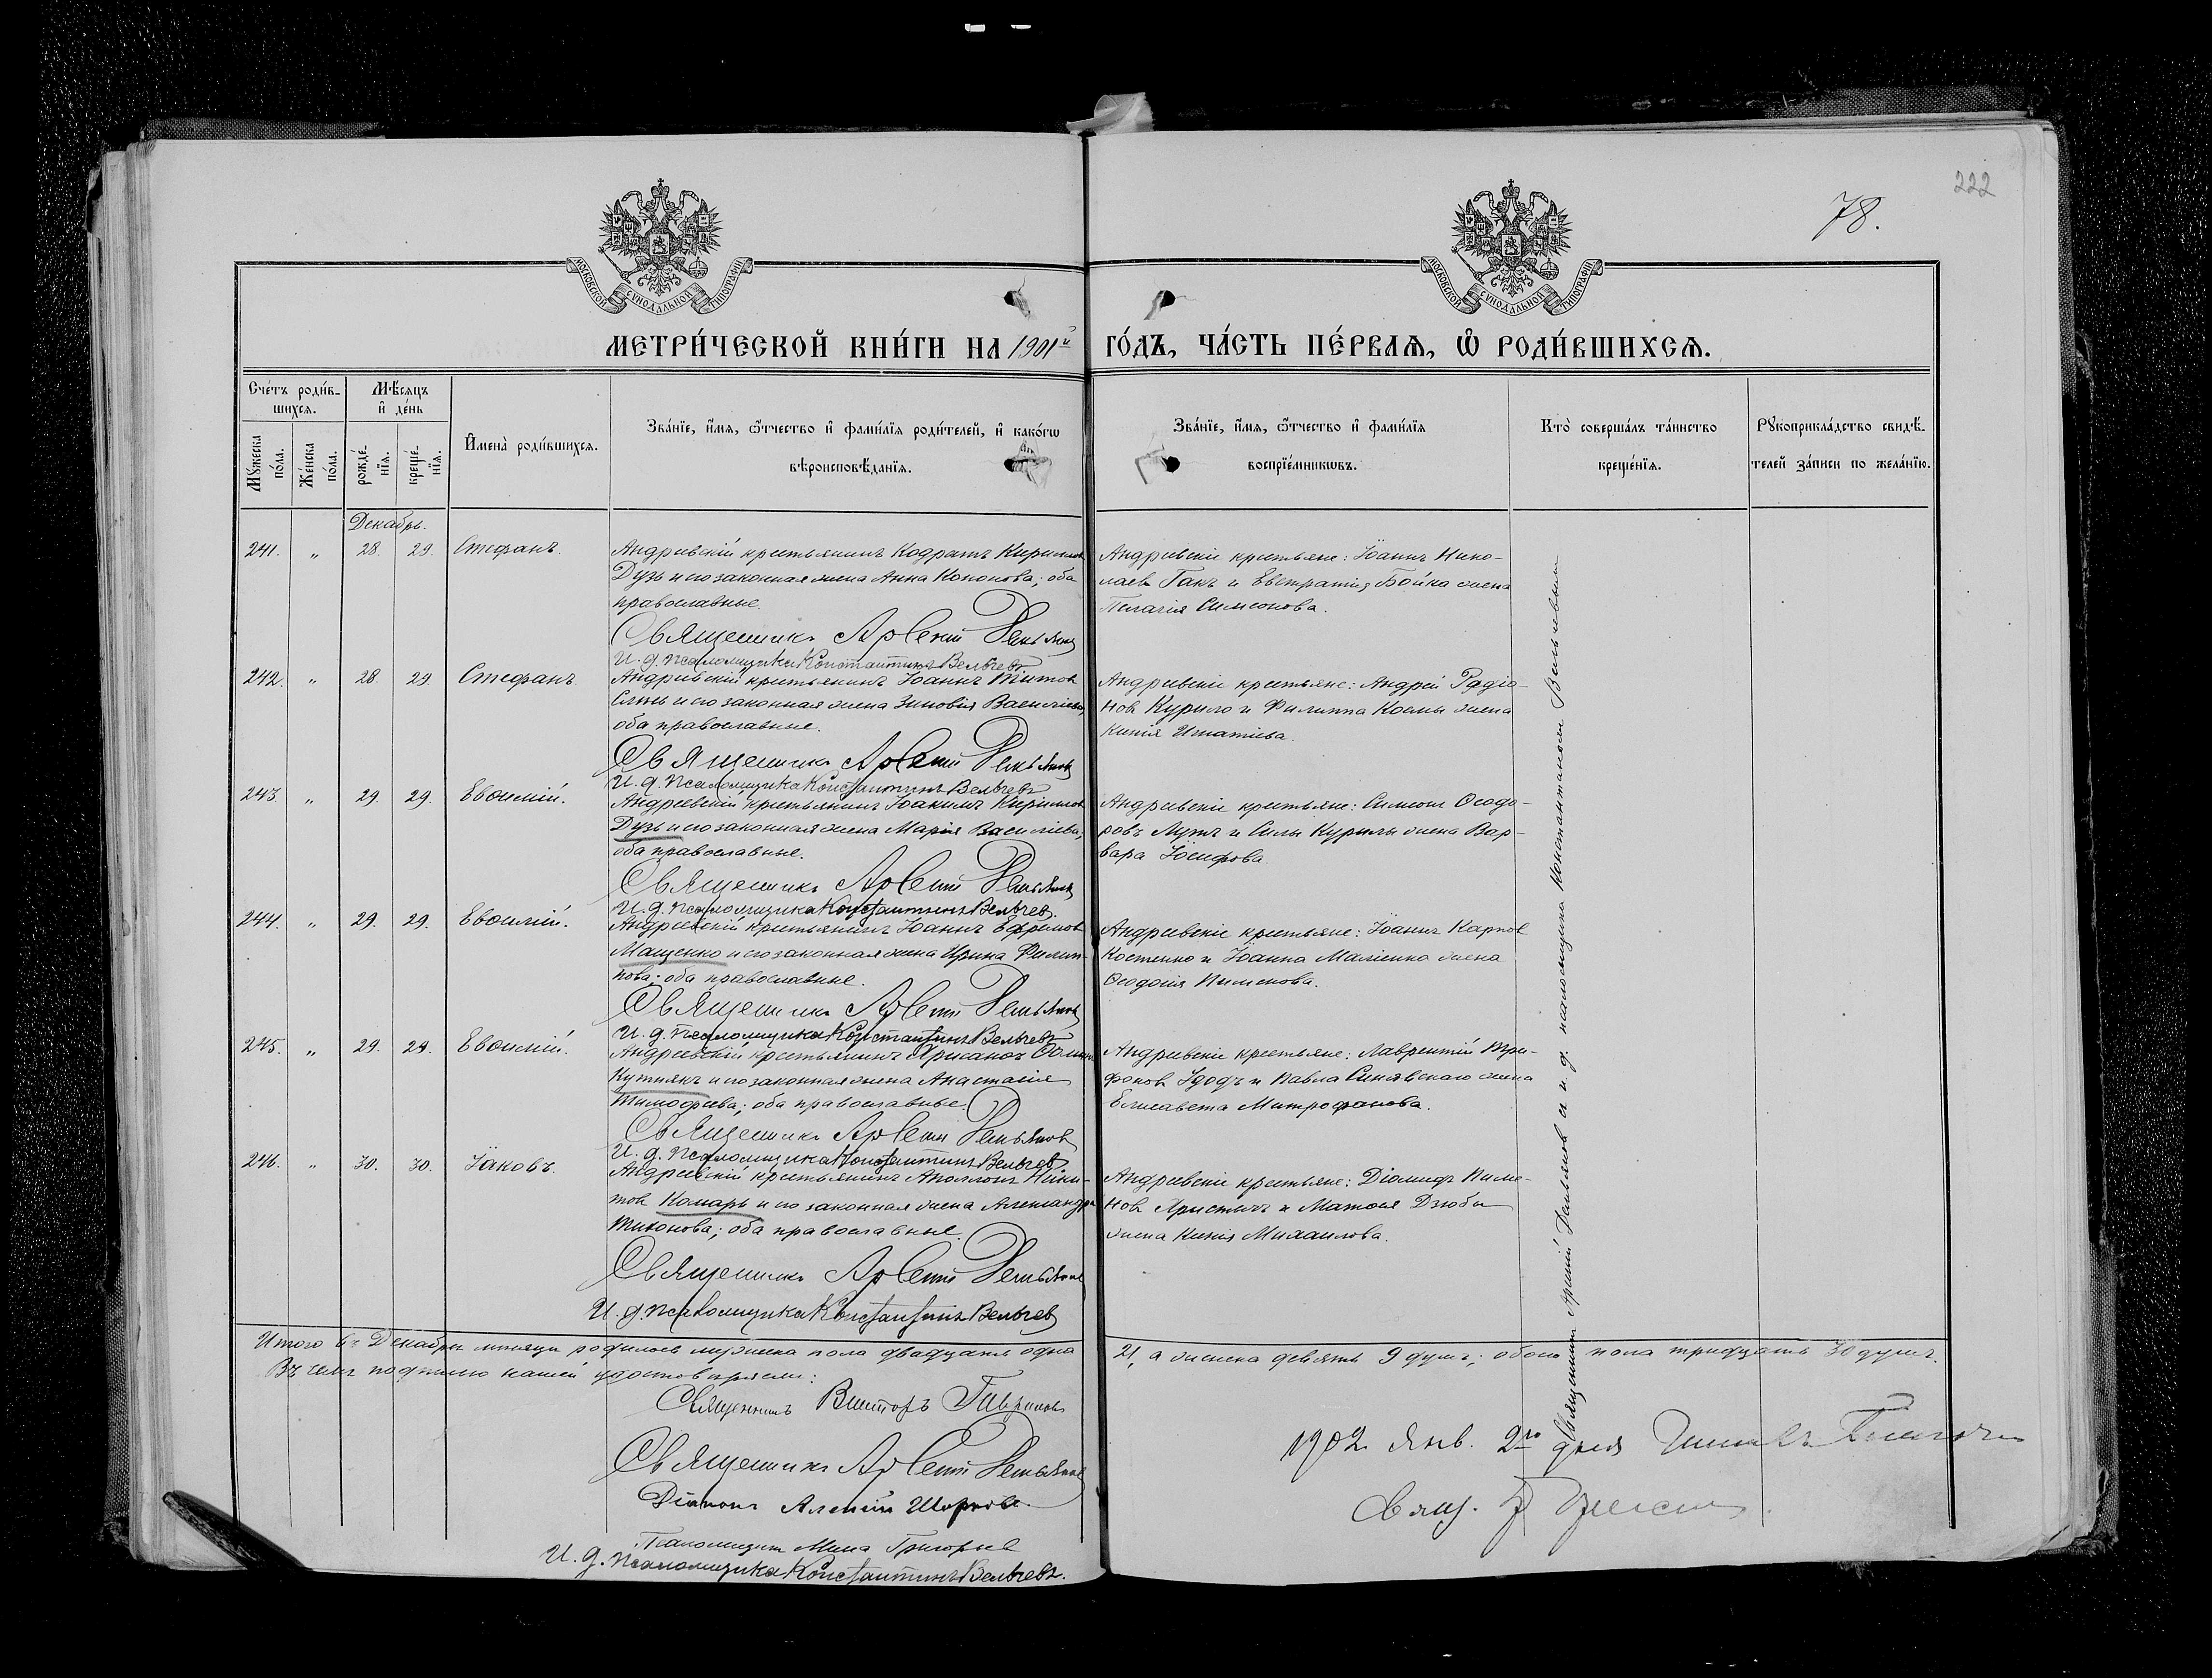 222
78.
МОСКОВСКОЙ СѴНОДАЛЬНОЙ ТИПОГРАФІИ
МОСКОВСКОЙ СѴНОДАЛЬНОЙ ТИПОГРАФІИ
МЕТРИ́ЧЕСКОЙ КНИ́ГИ НА 1901й ГО́ДЪ, ЧА́СТЬ ПЕ́РВАѦ, Ѡ РОДИ́ВШИХСѦ.
Сче́тъ роди́вшихсѧ.
Мѹ́жеска по́ла.
Же́нска по́ла.
Мѣ́сѧцъ и҆ де́нь
рожде́нїѧ.
креще́нїѧ.
И҆мена̀ роди́вшихсѧ.
Зва́нїе, и҆́мѧ, ѻ҆́тчество и҆ фами́лїѧ роди́телей, и҆ како́гѡ вѣроисповѣ́данїѧ.
Зва́нїе, и҆́мѧ, ѻ҆́тчество и҆ фами́лїѧ воспрїе́мникѡвъ.
Кто̀ соверша́лъ та́инство креще́нїѧ.
Рѹкоприкла́дство свидѣ́телей за́писи по жела́нїю.
Декабрь.
241. „ 28. 29. Стефанъ.
Андреевскій крестьянинъ Кодратъ Кириллов
Дузь и его законная жена Анна Кононова; оба
православные.
Священникъ Арсений Демьянов
И. д. псаломщика Константинъ Вельчевъ
Андреевскіе крестьяне: Іоаннъ Нико-
лаев Гакъ и Евстратія Бойка жена
Пелагія Симеонова.
242. „ 28 29. Стефанъ
Андреевскій крестьянинъ Іоаннъ Титов
и его законная жена Зиновія Васильева,
оба православные.
Священникъ Арсений Демьянов
И. д. псаломщика Константинъ Вельчевъ
Андреевскіе крестьяне: Андрей Радіо-
нов Курило и Филиппа Космы жена
Ксенія Игнатіева.
243. „ 29. 29. Евѳимій.
Андреевскій крестьянинъ Іоакимъ Кириллов
Дузь и его законная жена Марія Василіева,
оба православные.
Священникъ Арсений Демьянов
И. д. псаломщика Константинъ Вельчевъ.
Андреевскіе крестьяне: Симеон Ѳеодо-
ровъ и Силы Курилы жена Вар-
вара Іосифова.
244. „ 29. 29. Евѳимій.
Андреевскій крестьянинъ Іоаннъ Ефримов
Мащенко и его законная жена Ирина Филип-
пова; оба православные.
Священникъ Арсений Демьянов
И. д. псаломщика Константинъ Вельчевъ
Андреевскіе крестьяне: Іоаннъ Карпов
Костенко и Іоанна жена
Ѳеодосія Пименова.
245. „ 29. 29. Евѳимій.
Андреевскій крестьянинъ Хрисанѳъ
Кутнякъ и его законная жена Анастасія
Тимофеева; оба православные.
Священникъ Арсений Демьянов
И. д. псаломщика Константинъ Вельчевъ.
Андреевскіе крестьяне: Лаврентій Три-
фонов и Павла Синявскаго жена
Елисавета Митрофанова.
246. „ 30. 30. Іаковъ.
Андреевскій крестьянинъ Аполлонъ Ники-
тов Комарь и его законная жена Александра
Тихонова; оба православные.
Священникъ Арсений Демьянов
И. д. псаломщика Константинъ Вельчевъ
Андреевскіе крестьяне: Діомидъ Пиме-
нов и Матѳея Дзюбы
жена Ксенія Михаилова.
Священником Арсеній Демьянов а и. д. псаломщика Константином Вельчевым
Итого въ Декабре месяце родилось мужеска пола двадцать одна 21, а женска девять 9 душъ; обоего пола тридцать 30 душъ.
Въ чемъ подписью нашей удостоверяем:
Священникъ Викторъ Гавриловъ
Священникъ Арсений Демьянов
Діаконъ Алексій
Псаломщикъ Мина Григорьев
И. д. псаломщика Константинъ Вельчевъ.
1902 Янв. 2го дня
Свящ.